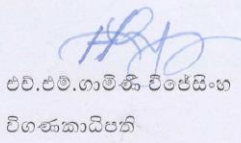 එච්.එම්.ගාමිණී විජේසිංහ
විගණකාධිපති